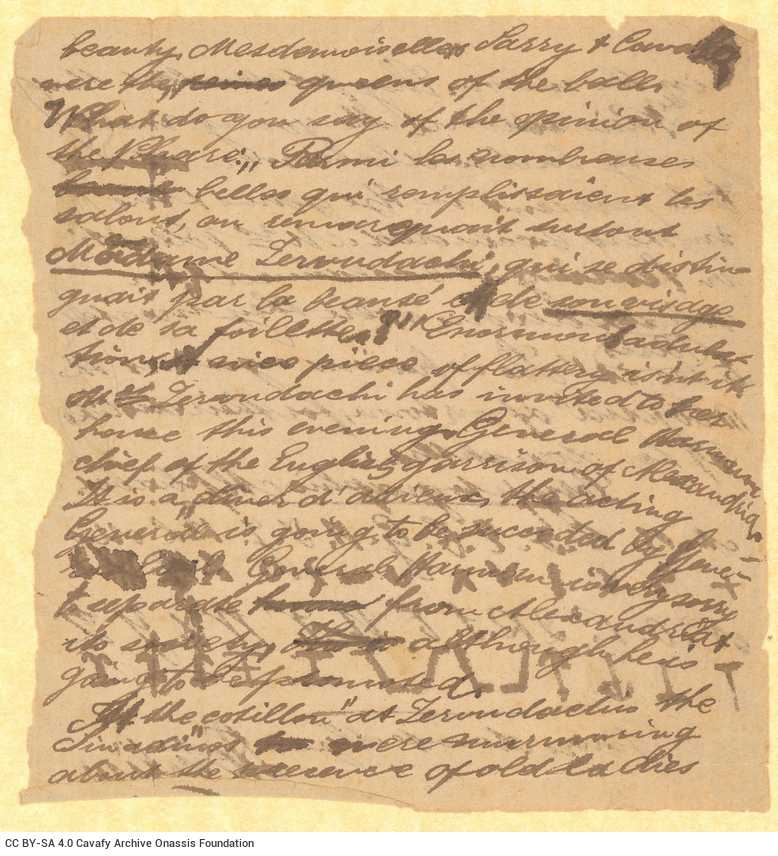 beauty, Mesdemoiselles Sarry &
were the queens of the ball.
What do you say of the opinion of
the "Phare" "Parmi les nombreuses
belles qui remplissaient les
salons, on remarquait surtout
Madame Zervudachi, qui se distin-
guait par la beauté de son visage
et de sa toilette"?! Enormous adula-
tion & nice piece of flattery isn't it.
Zervudachi has invited to her
house this evening General
chief of the English garrison of Alexandria.
It is a "diner d'adieux, the acting
General is going to be succeeded by Gene-
General is very sorry
to separate from Alexandria &
its society, although he is
going to be promoted.
At the cotillon" at Zervudachis the
were murmuring
about the presence of old ladies
CC BY-SA 4.0 Cavafy Archive Onassis Foundation